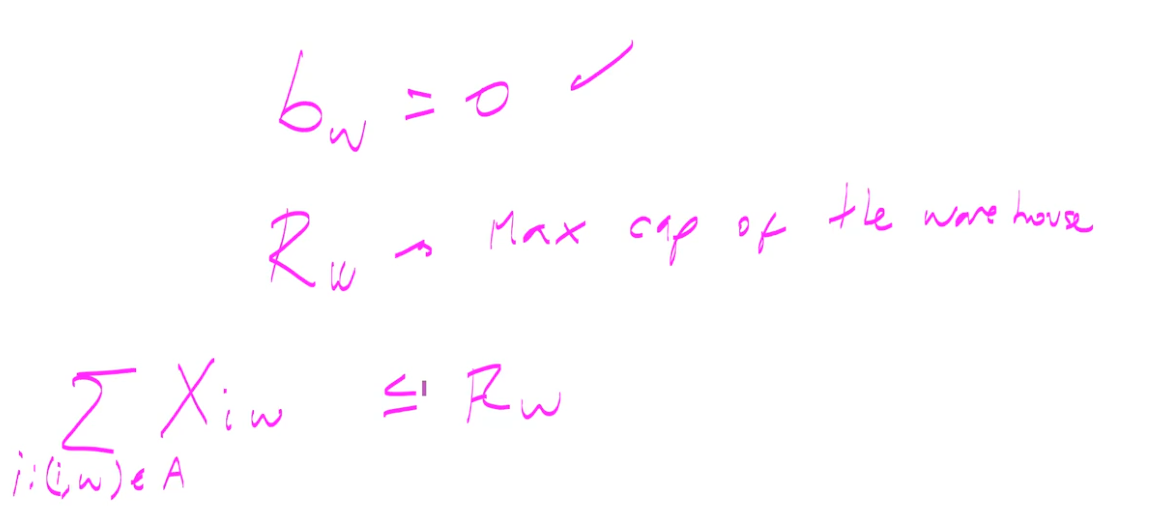 b_w = 0 ✓
R_w → Max cap of the warehouse
∑ X_iw ≤ R_w
i:(i,w)∈A